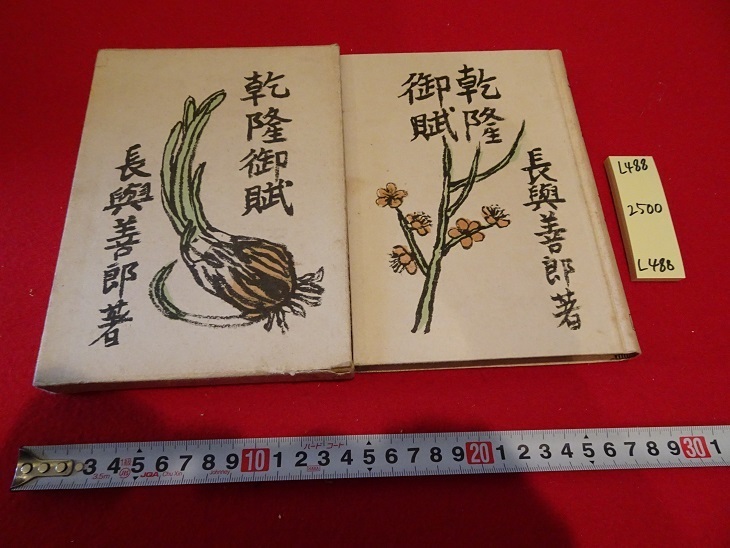 乾隆御賦
長與善郎著
乾隆
御賦
長與善郎著
L488
2500
L488
3 4 5 6 7 8 9 10 1 2 3 4 5 6 7 8 9 20 1 2 3 4 5 6 7 8 9 30 1
3.5m
JQA
ハード コート